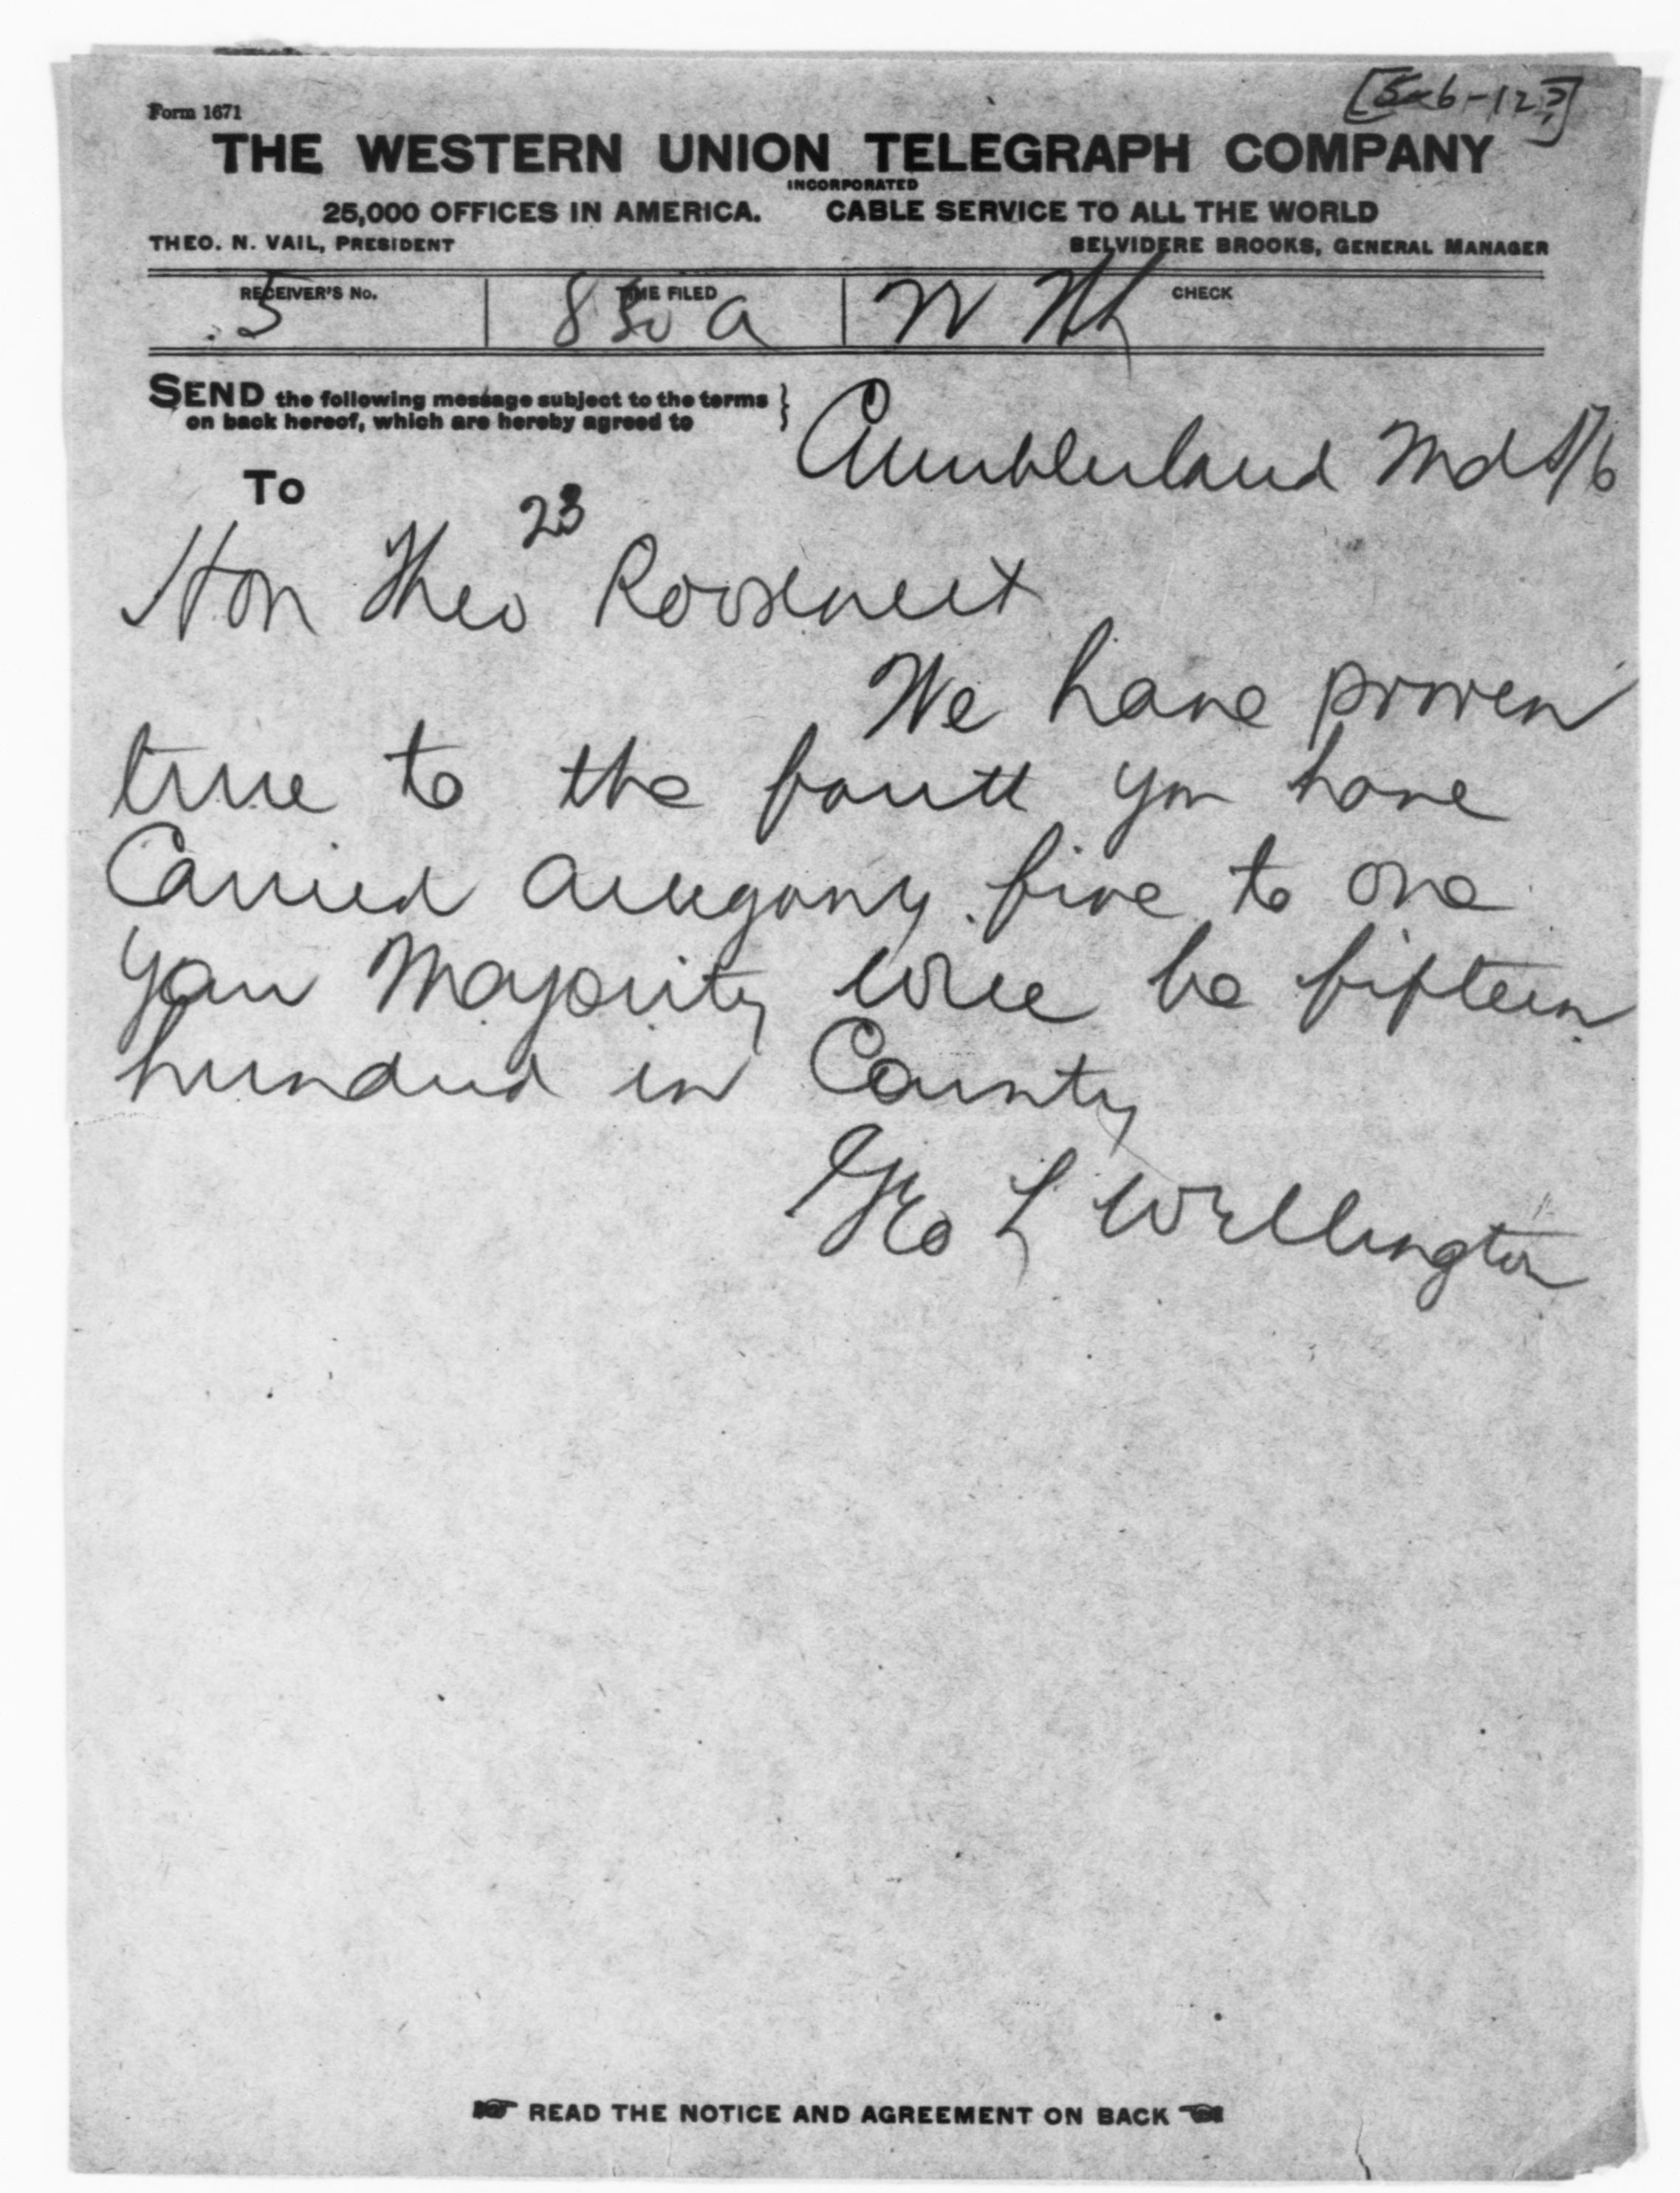 [5-6-12?]
Form 1671
THE WESTERN UNION TELEGRAPH COMPANY
INCORPORATED
25,000 OFFICES IN AMERICA. CABLE SERVICE TO ALL THE WORLD
THEO. N. VAIL, PRESIDENT BELVIDERE BROOKS, GENERAL MANAGER
RECEIVER'S No. TIME FILED CHECK
5 830 a N Nh
SEND the following message subject to the terms
on back hereof, which are hereby agreed to
Cumberland Md 5/6
To
23
Hon Theo Roosevelt
We have proven
true to the faith you have
Carried Allegany five to one
your Majority will be fifteen
hundred in County
Geo L Wellington
READ THE NOTICE AND AGREEMENT ON BACK